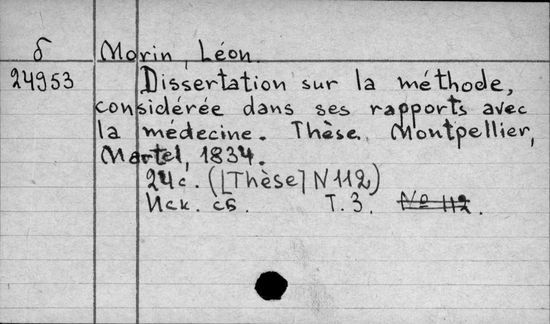 δ Morin, Léon.
24953 Dissertation sur la méthode,
considérée dans ses rapports avec
la médecine. Thèse. Montpellier,
Martel, 1834.
24с. ([Thèse] N 112)
Иск. сб. Т. 3. № 112.